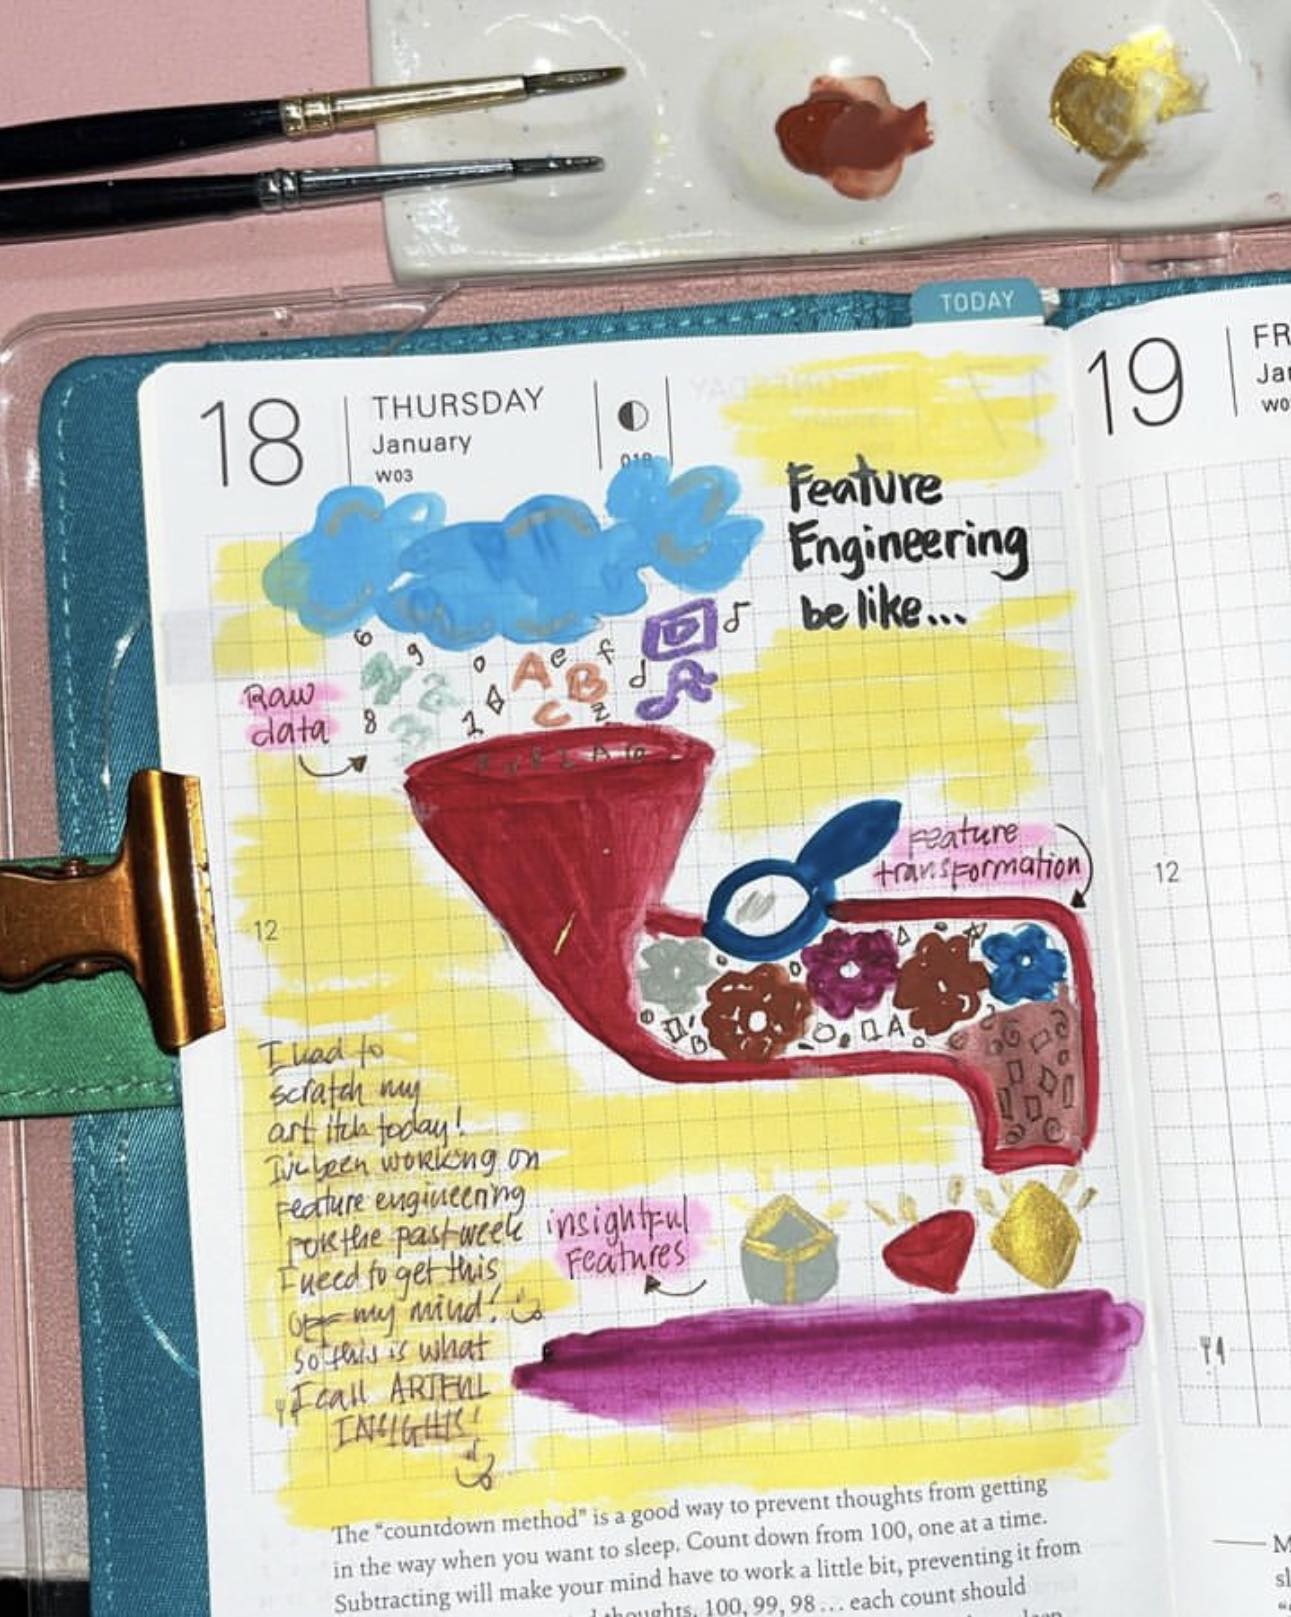 TODAY
18
THURSDAY
January
W03
19
FR
Jan
Feature
Engineering
be like...
6 9 0 e f
A B C
8 1 z
Raw
data
Feature
transformation
12
12
B A
I had to
scratch my
art itch today!
I've been working on
feature engineering
for the past week
I need to get this
off my mind!
so this is what
I call ARTFUL
INSIGHTS!
insightful
features
The “countdown method” is a good way to prevent thoughts from getting
in the way when you want to sleep. Count down from 100, one at a time.
Subtracting will make your mind have to work a little bit, preventing it from
thoughts. 100, 99, 98 … each count should